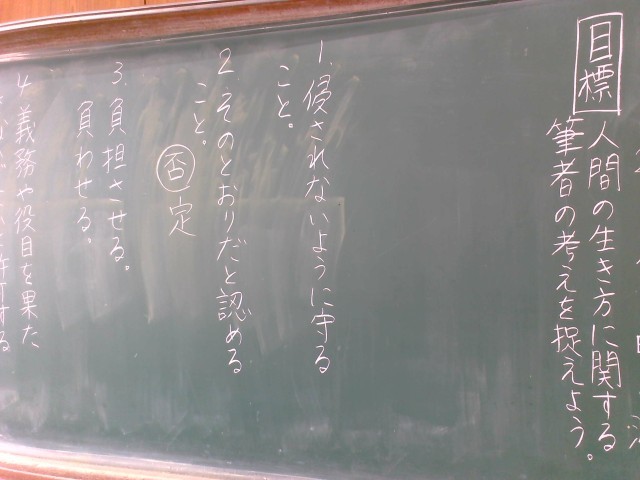 目標
人間の生き方に関する
筆者の考えを捉えよう。
1.侵されないように守る
こと。
2.そのとおりだと認める
こと。
否定
3.負担させる。
負わせる。
4.義務や役目を果た